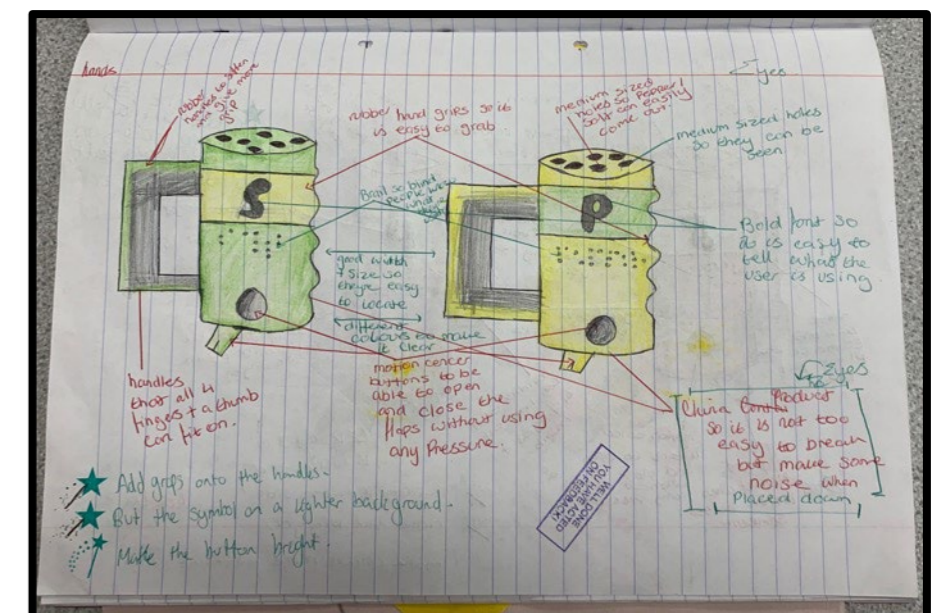 hands
Eyes
rubber
handles to soften
and give more
grip
rubber hand grips so it
is easy to grab.
medium sized
holes so Pepper/
Salt can easily
come out.
medium sized holes
so they can be
seen
S
P
so blind
People
what
good width
+ Size so
theyre easy
to locate
different
colours to make
it clear
Bold font so
it is easy to
tell what the
user is using
handles
that all 4
fingers + a thumb
can fit on.
motion cencer
buttons to be
able to open
and close the
flaps without using
any Pressure.
Eyes
China Product
so it is not too
easy to break
but make some
noise when
Placed down
WELL DONE
YOU HAVE ACTED
ON FEEDBACK!
Add grips onto the handles.
But the symbol on a lighter background.
Make the button bright.